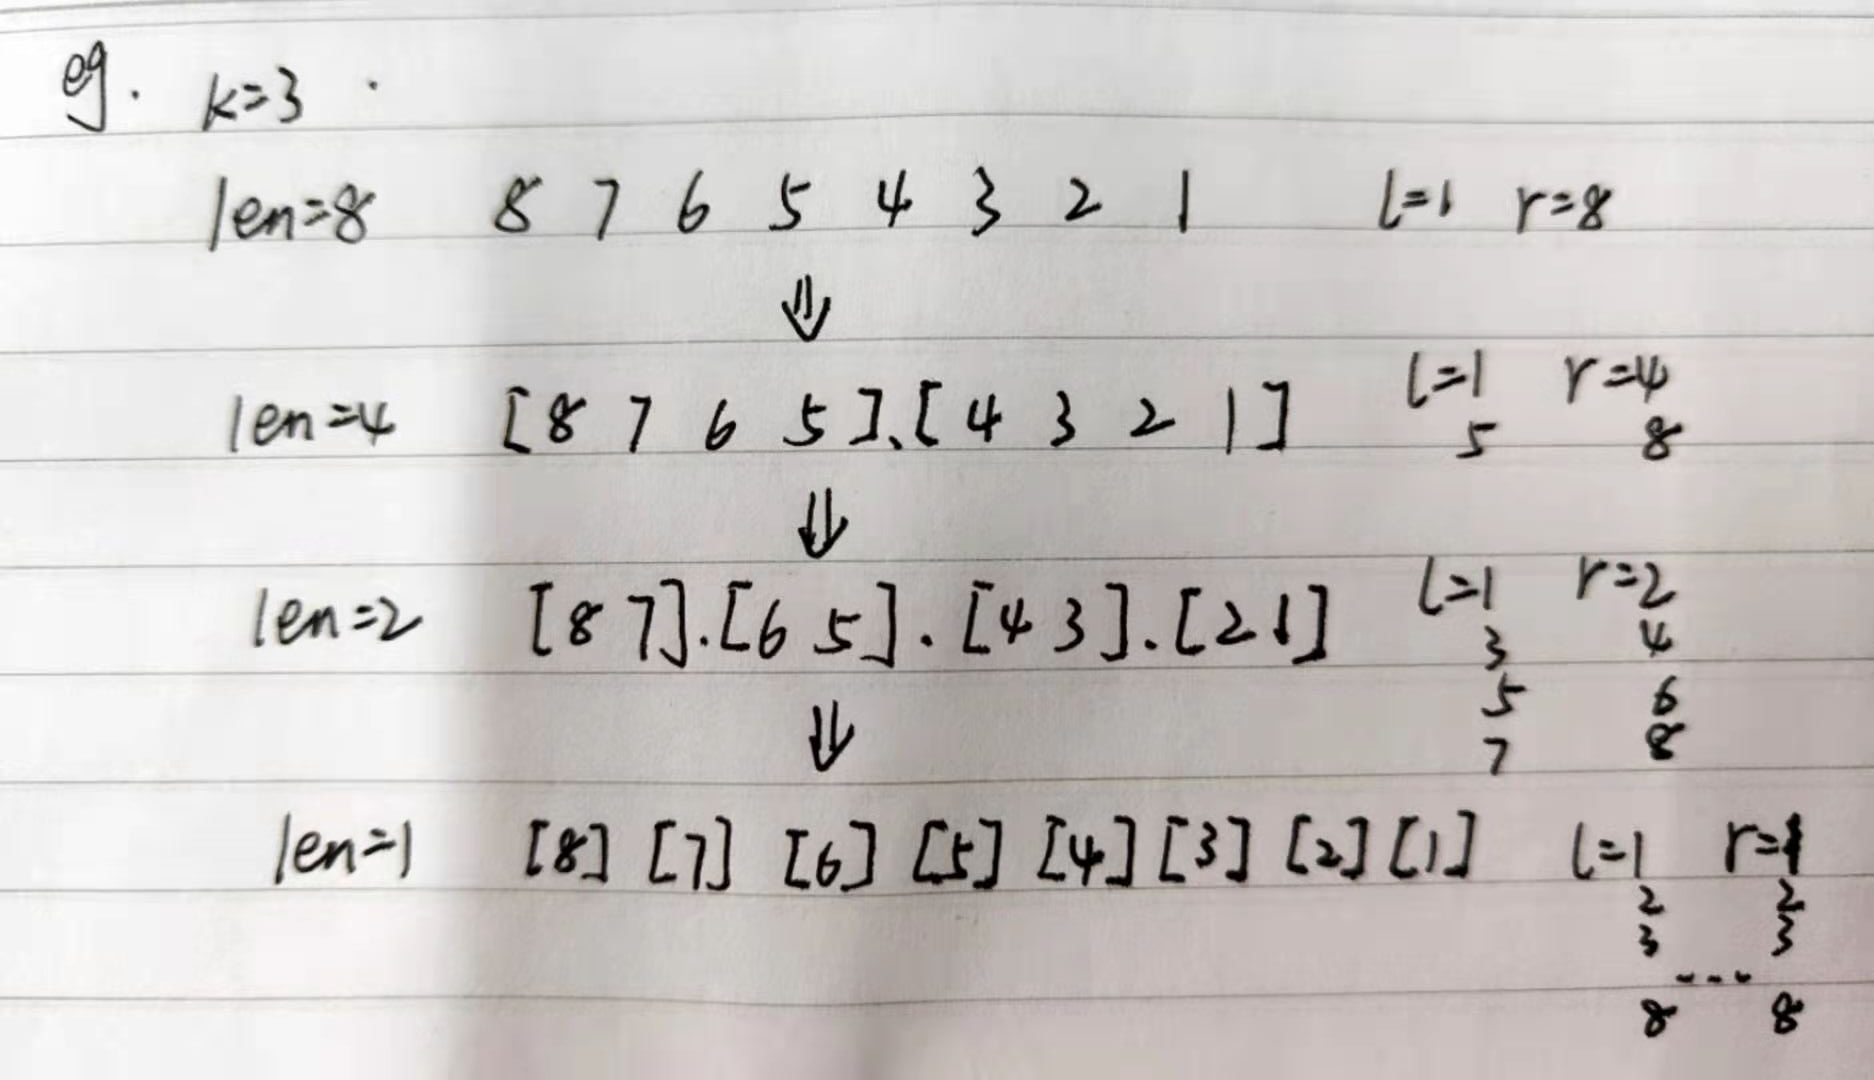 eg. k=3 .
len=8 8 7 6 5 4 3 2 1 l=1 r=8
⇓
len=4 [8 7 6 5].[4 3 2 1] l=1 r=4
5 8
⇓
len=2 [8 7].[6 5].[4 3].[2 1] l=1 r=2
3 4
5 6
⇓
7 8
len=1 [8] [7] [6] [5] [4] [3] [2] [1] l=1 r=1
2 2
3 3
...
8 8